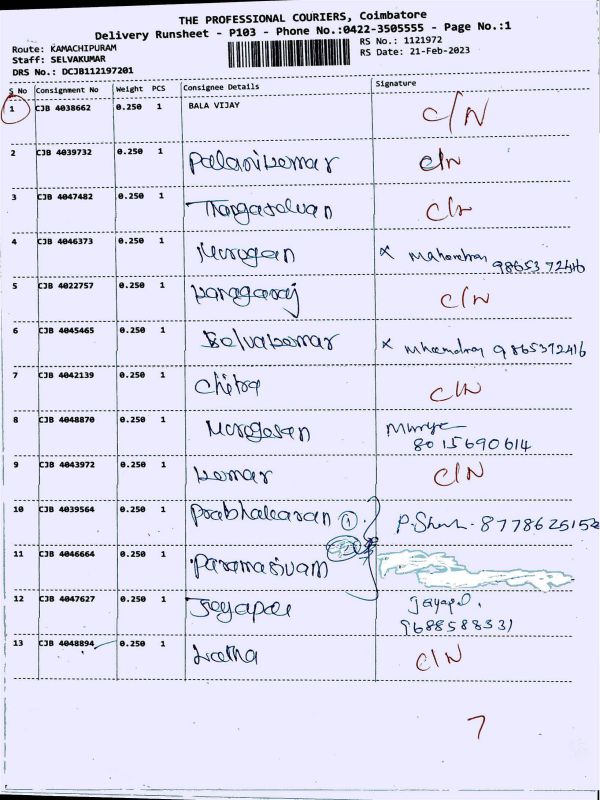 THE PROFESSIONAL COURIERS, Coimbatore
Delivery Runsheet - P103 - Phone No.:0422-3505555 - Page No.:1
Route: KAMACHIPURAM
RS No.: 1121972
Staff: SELVAKUMAR
RS Date: 21-Feb-2023
DRS No.: DCJB112197201
S No Consignment No Weight PCS Consignee Details Signature
1 CJB 4038662 0.250 1 BALA VIJAY C/N
2 CJB 4039732 0.250 1 Palanikumar C/N
3 CJB 4047482 0.250 1 Thangaselvan C/N
4 CJB 4046373 0.250 1 Murugan x Mahendran
9865372416
5 CJB 4022757 0.250 1 Kanagaraj C/N
6 CJB 4045465 0.250 1 Selvakumar x Mhendran 9865372416
7 CJB 4042139 0.250 1 Chitra C/N
8 CJB 4048870 0.250 1 Murugesan
8015690614
9 CJB 4043972 0.250 1 Kumar C/N
10 CJB 4039564 0.250 1 Prabhakaran 1 P. 8778625152
11 CJB 4046664 0.250 1 Paramasivam
12 CJB 4047627 0.250 1 Jeyapal Jeyapal.
9688588331
13 CJB 4048894 0.250 1 Latha C/N
7